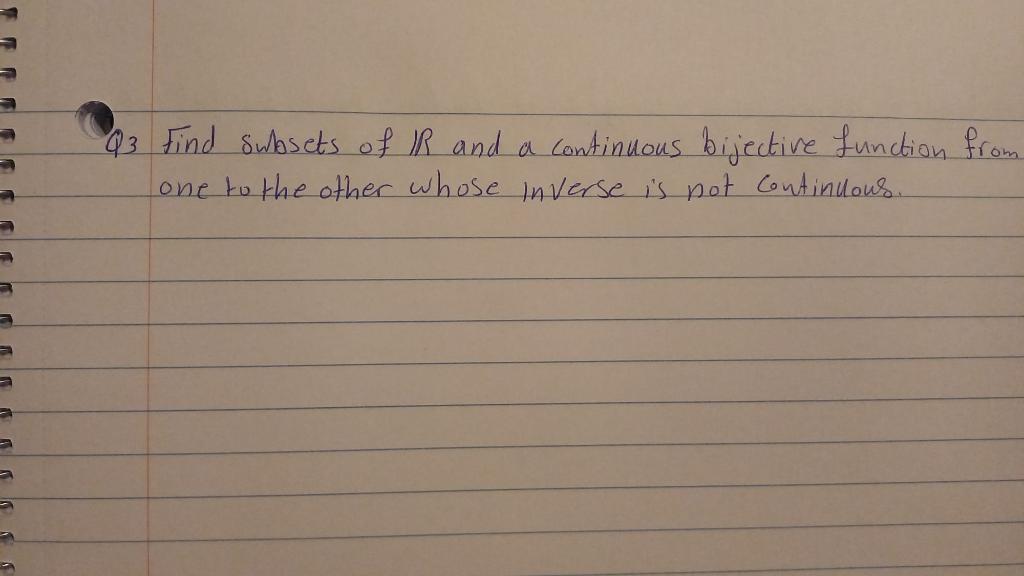 Q3 Find subsets of ℝ and a continuous bijective function from
one to the other whose inverse is not continuous.